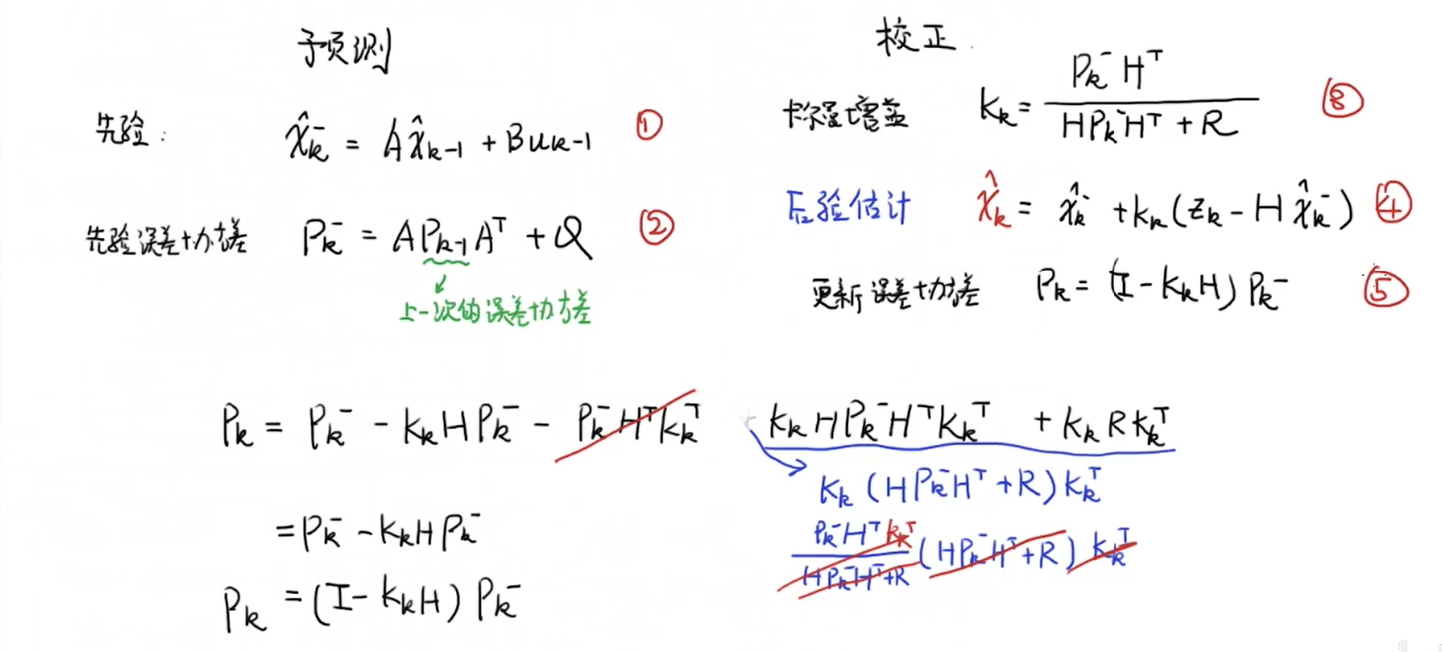 预测
先验:
x̂ₖ⁻ = Ax̂ₖ₋₁ + Buₖ₋₁ ①
先验误差协方差 Pₖ⁻ = APₖ₋₁Aᵀ + Q ②
上一次的误差协方差
校正
卡尔曼增益 Kₖ = Pₖ⁻Hᵀ / (HPₖ⁻Hᵀ + R) ③
后验估计 x̂ₖ = x̂ₖ⁻ + Kₖ(zₖ - Hx̂ₖ⁻) ④
更新误差协方差 Pₖ = (I - KₖH)Pₖ⁻ ⑤
Pₖ = Pₖ⁻ - KₖHPₖ⁻ - Pₖ⁻HᵀKₖᵀ + KₖHPₖ⁻HᵀKₖᵀ + KₖRKₖᵀ
Kₖ(HPₖ⁻Hᵀ + R)Kₖᵀ
= Pₖ⁻ - KₖHPₖ⁻
Pₖ⁻HᵀKₖᵀ / (HPₖ⁻Hᵀ + R) (HPₖ⁻Hᵀ + R) Kₖᵀ
Pₖ = (I - KₖH)Pₖ⁻